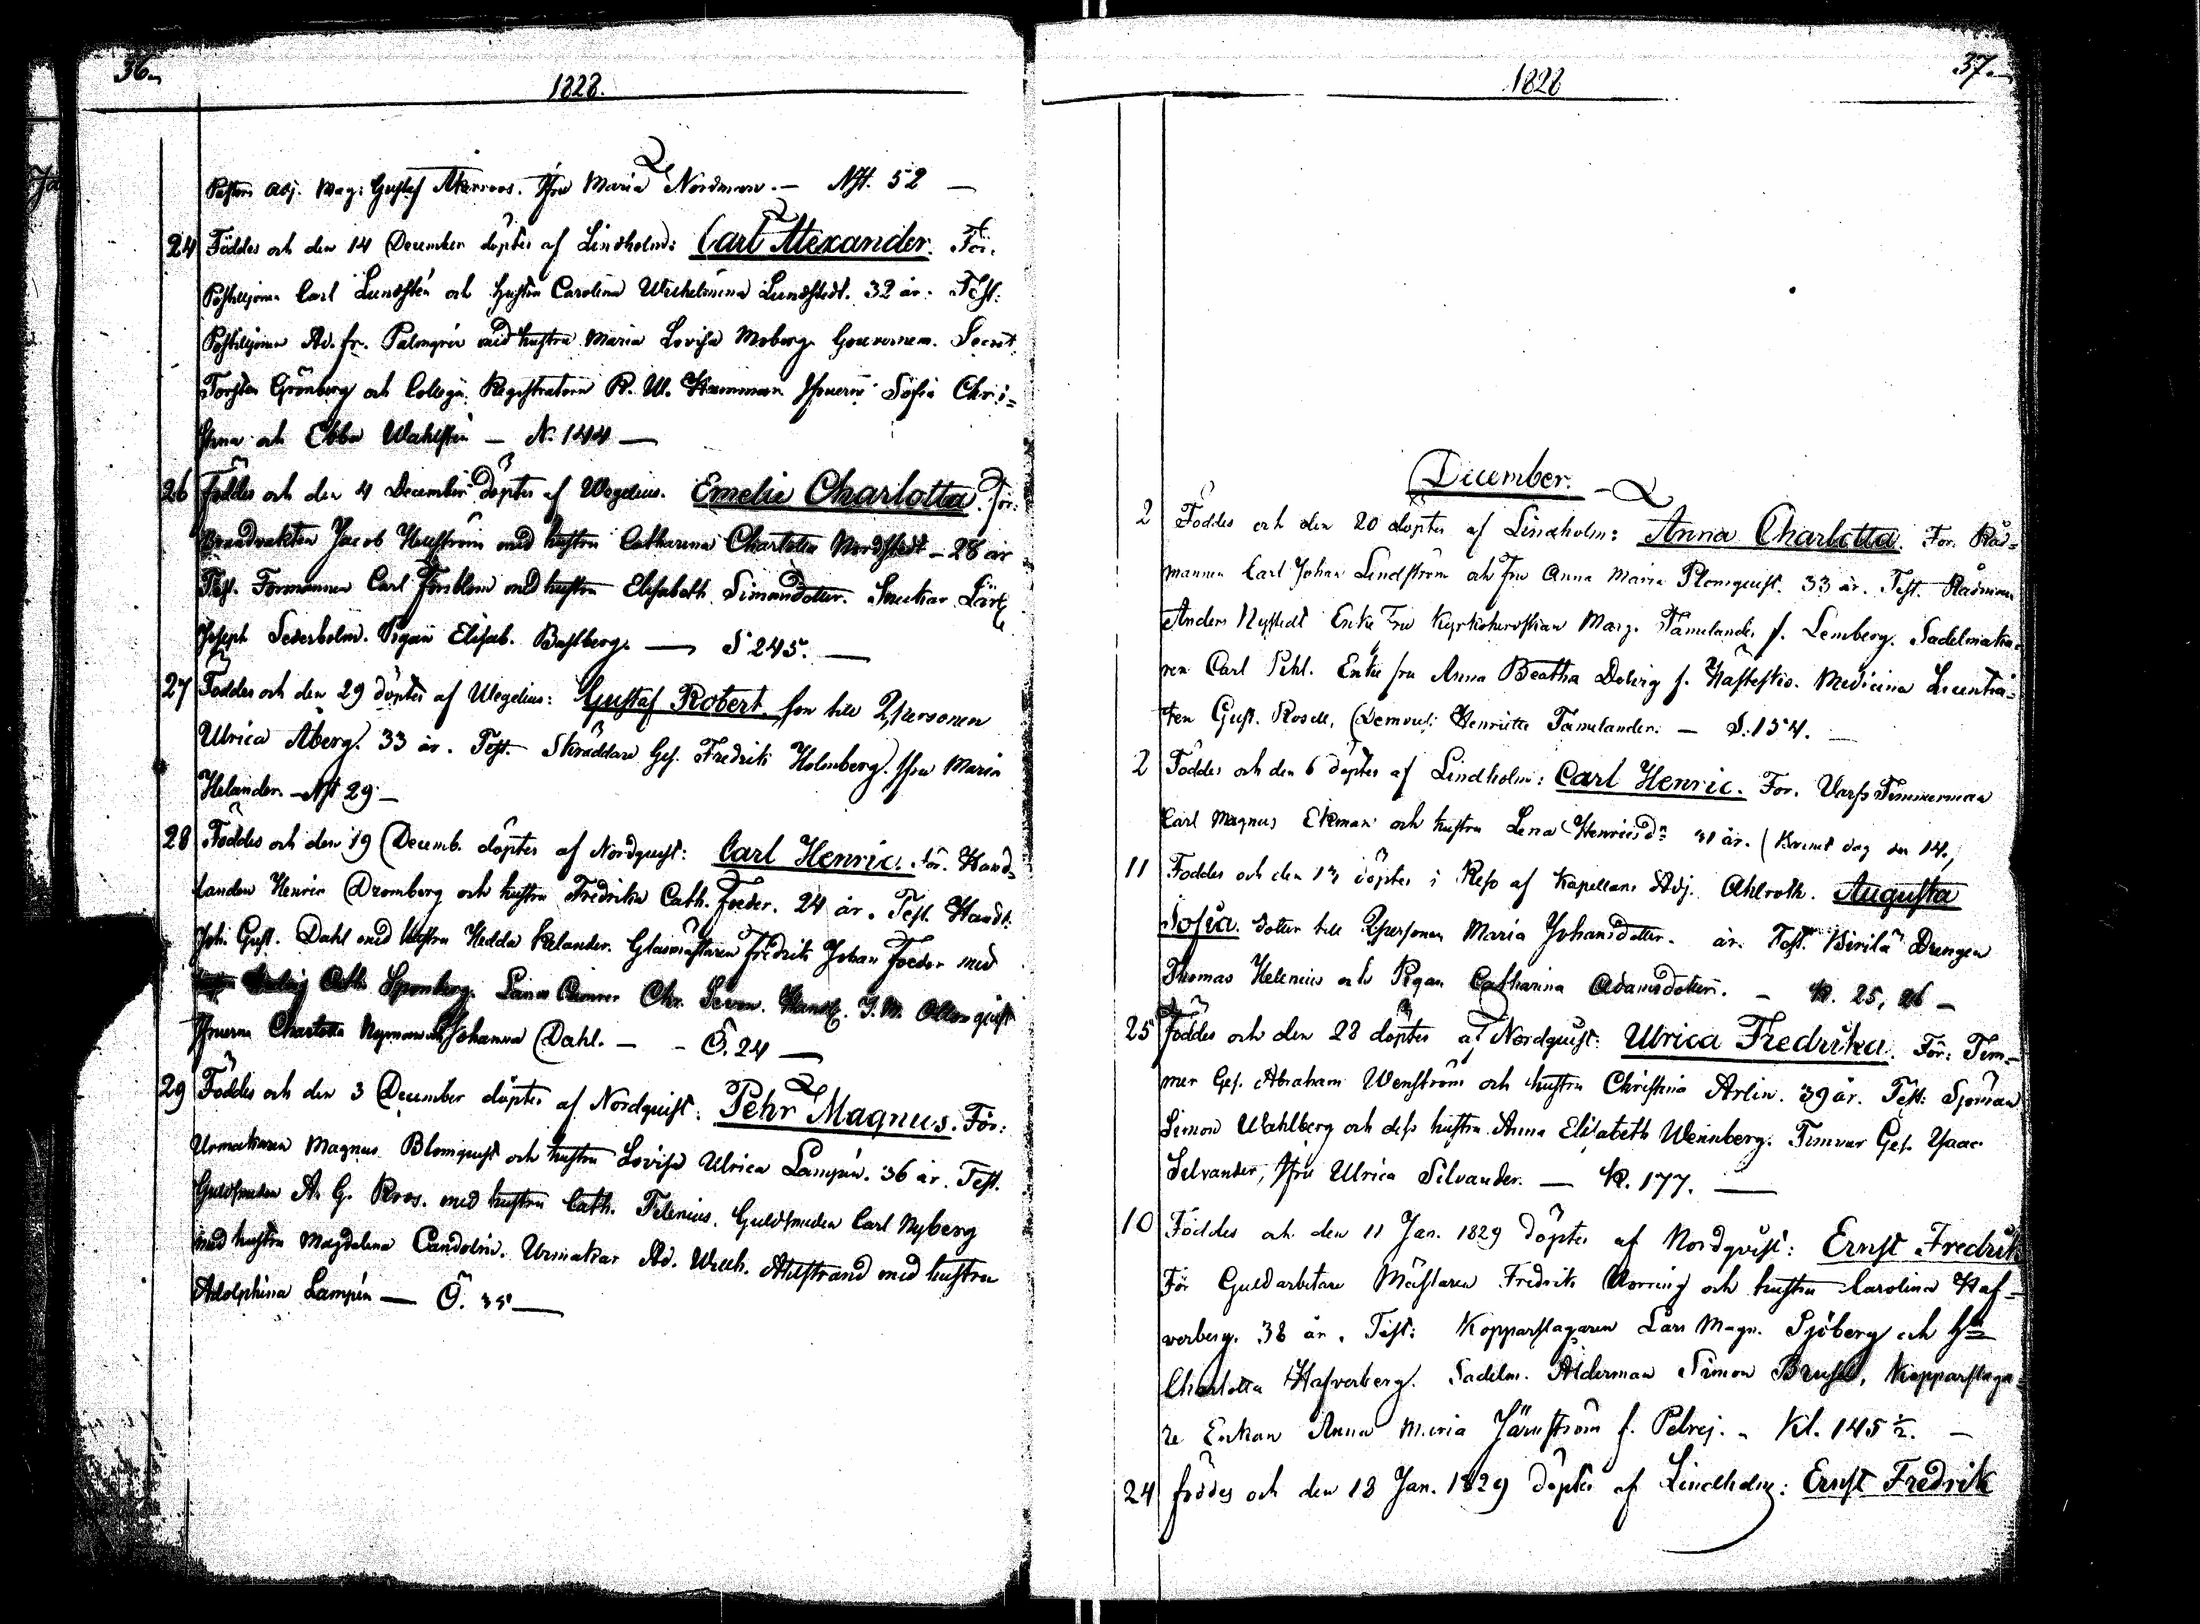 36.
1828.
Pastors Adj. Mag: Gustaf Åkerroos. Jfru Maria Nordman. — Nyst. 52 —
24 Föddes och den 14 December döptes af Lindholm: Carl Alexander. För.
Postiljonen Carl Lundstén och hustru Carolina Wilhelmina Lundstedt. 32 år. Test:
Postiljonen Ad. Fr. Palmgrén med hustru Maria Lovisa Moberg. Gouvernem. Secret.
Torsten Grönberg och Collegii Registratorn R. W. Jfruerne Sofia Chri=
stina och Ebba Wahlstén — N. 144 —
26 Föddes och den 4 December döptes af Wegelius. Emelie Charlotta. För:
Brandvakten Jacob Hellström med hustru Catharina Charlotta Nordstedt — 28 år
Test. Formannen Carl Forsblom med hustru Elisabeth Simonsdotter. Snickar Lärl.
Joseph Sederholm. Pigan Elisab. Bastberg. — S 245. —
27 Föddes och den 29 döptes af Wegelius: Gustaf Robert. son till Qpersonen
Ulrica Åberg. 33 år. Test. Skräddare Ges. Fredrik Holmberg. Jfru Maria
Helander. — Nyst 29 —
28 Föddes och den 19 Decemb. döptes af Nordquist: Carl Henric. För. Hand=
landen Henric Dromberg och hustru Fredrika Cath. Foeder. 24 år. Test. Handl.
Joh. Gust. Dahl med hustru Hedda Helander. Glasmästaren Fredrik Johan Foeder med
Cath. Spoonberg. Chr. Handl. J. M.
Jfruerna Charlotta Nyman och Johanna Dahl. — — Ö. 24 —
29 Föddes och den 3 December döptes af Nordquist: Pehr Magnus. För:
Urmakaren Magnus Blomquist och hustru Lovisa Ulrica Lampén. 36 år. Test.
Guldsmeden A. G. Roos. med hustru Cath. Felenius. Guldsmeden Carl Nyberg
med hustru Magdalena Candolin. Urmakar Ad. Wilh. Ahlstrand med hustru
Adolphina Lampén — Ö. 35 —
37.
1828
December.
2 Föddes och den 20 döptes af Lindholm: Anna Charlotta. För. Råd=
mannen Carl Johan Lindström och Fru Anna Maria Blomquist. 33 år. Test. Rådman
Anders Nystedt Enke Fru Kyrkoherdskan Marg. Tamelander f. Lemberg. Sadelmaka=
ren Carl Pihl. Enke fru Anna Beatha Delvig f. Medicina Licentia=
ten Gust. Rosell, Demois: Henriette Tamelander. — S. 154. —
2 Föddes och den 6 döptes af Lindholm: Carl Henric. För. Varfs Timmerman
Carl Magnus Ekman och hustru Lena Henricsd:r 31 år. (Brand dag den 14.)
11 Föddes och den 13 döptes i Reso af Kapellans Adj. Ahlroth. Augusta
Sofia. dotter till Qpersonen Maria Johansdotter. år. Test. Kirila Drengen
Thomas Helenius och Pigan Catharina Adamsdotter. — K. 25, 26 —
25 Föddes och den 28 döptes af Nordquist: Ulrica Fredrika. För: Tim=
mer Ges. Abraham Wenström och hustru Christina Arlin. 39 år. Test: Sjöman
Simon Wahlberg och dess hustru Anna Elisabeth Wennberg. Timmer Ges. Isaac
Silvander, Jfru Ulrica Silvander. — K. 177. —
10 Föddes och den 11 Jan. 1829 döptes af Nordqvist: Ernst Fredrik
För Guldarbetare Mästaren Fredrik Norring och hustru Carolina Haf=
verberg. 38 år. Test: Kopparslagaren Lars Magn. Sjöberg och h:u
Charlotta Hafverberg. Sadelm. Ålderman Simon Brusel, Kopparslaga=
re Enkan Anna Maria Järnström f. Pelrej. — Kl. 145 ½. —
24 föddes och den 13 Jan. 1829 döptes af Lindholm: Ernst Fredrik